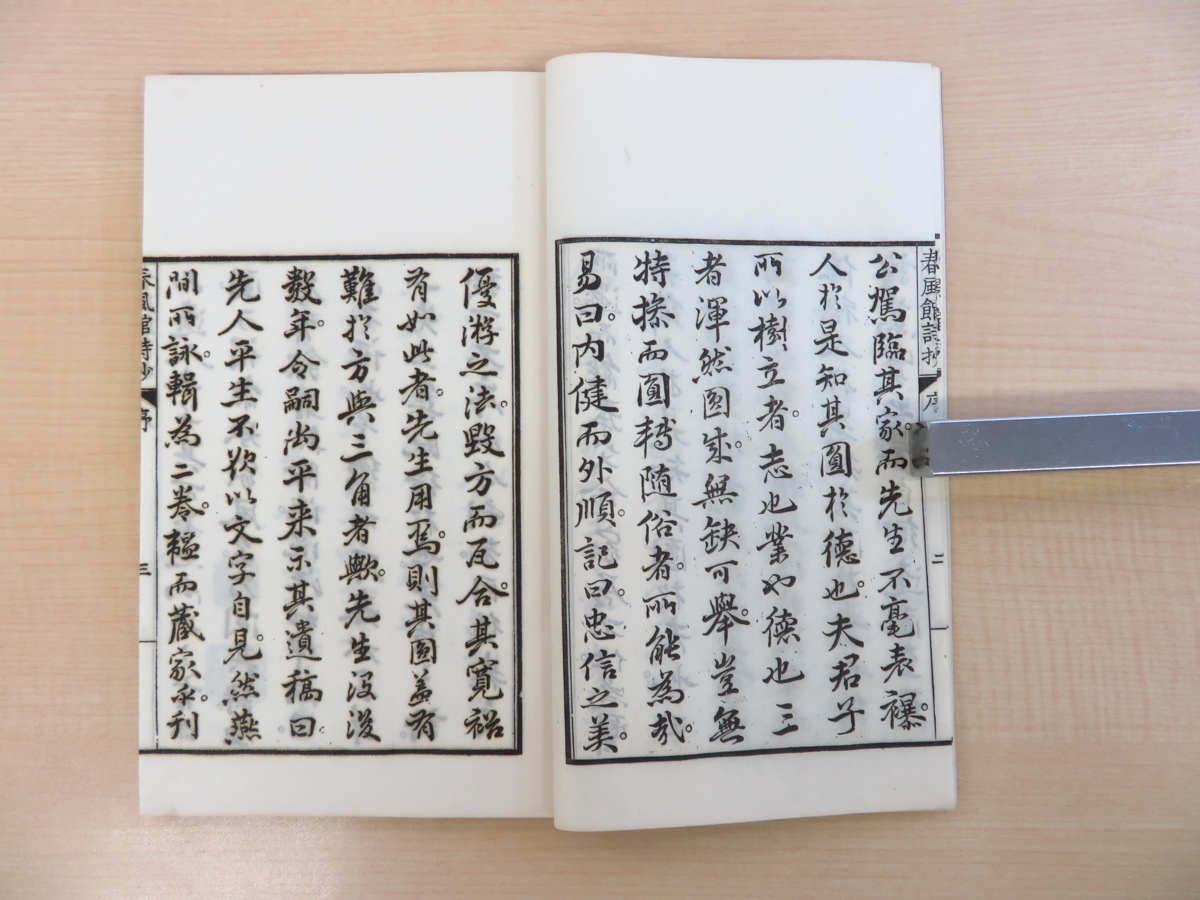 春風館詩抄
序
二
公駕臨其家。而先生不毫表襮。
人於是知其圓於德也。夫君子
所以樹立者。志也業也德也三
者渾然圓成。無缺可舉。豈無
特操而圓轉随俗者。所能為哉。
易曰。内健而外順。記曰。忠信之美。
優游之法。毀方而瓦合。其寬裕
有如此者。先生用焉。則其圓蓋有
難於方與三角者歟。先生沒後
數年。令嗣尚平来示其遺稿曰
先人平生不欲以文字自見。然燕
間所詠。輯為二卷。韞而藏家。不刊
春風館詩抄
序
三